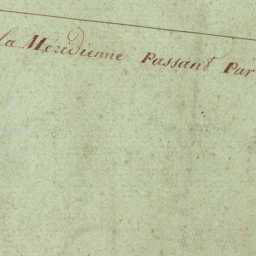 la Méridienne Passant Par